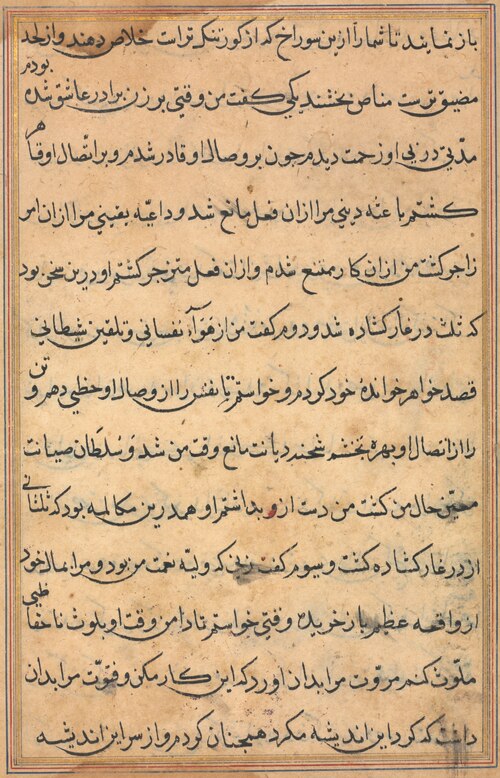 باز نمایند تا شما را ازین سوراخ که از کور تنک ترات خلاص دهند و از لحد
مضیق ترست مناص بخشند یکی کفت من وقتی بر زن برادر عاشق شده بودم
مدتی در پی او زحمت دیدم چون بر وصال او قادر شدم و بر اتصال او قاهر
کشتم باعثه دینی مرا ازان فعل مانع شد و داعیه یقینی مرا ازان امر
زاجر کشت من ازان کار ممتنع شدم و ازان فعل منزجر کشتم او درین سخن بود
که ثلث در غار کشاده شد و دوم کفت من از هوآء نفسانی و تلقین شیطانی
قصد خواهر خواندهٔ خود کردم و خواستم تا نفس را از وصال او حظی دهم و تن
را از اتصال او بهره بخشم شحنه دیانت مانع وقت من شد و سلطان صیانت
حال من کشت من دست ازو بداشتم او همدرین مکالمه بود که ثلثانی
از در غار کشاده کشت و سیوم کفت زنی که ولیه نعمت من بود و مرا بمال خود
از واقعه عظیم باز خریده وقتی خواستم تا دامن وقت او بلوث ناحفاظی
ملوث کنم مروت مرا بدان اورد که این کار مکن و فتوت مرا بدان
داشت که کرد این اندیشه مکرد همچنان کردم و از سر این اندیشه